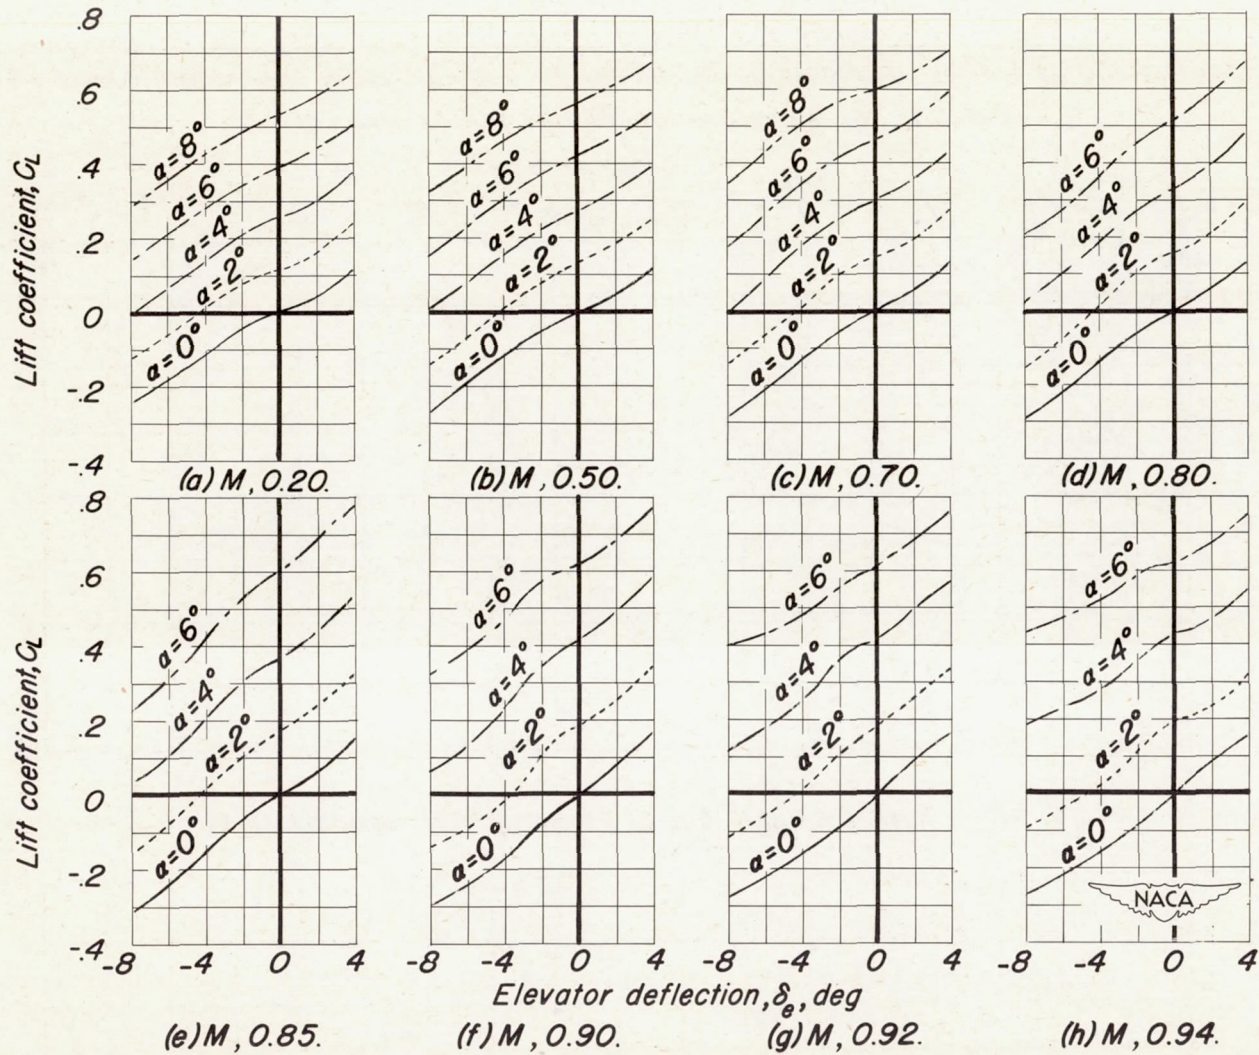 Lift coefficient, CL
.8
.6
.4
.2
0
-.2
-.4
α=8°
α=6°
α=4°
α=2°
α=0°
(a) M, 0.20.
α=8°
α=6°
α=4°
α=2°
α=0°
(b) M, 0.50.
α=8°
α=6°
α=4°
α=2°
α=0°
(c) M, 0.70.
α=6°
α=4°
α=2°
α=0°
(d) M, 0.80.
Lift coefficient, CL
.8
.6
.4
.2
0
-.2
-.4
α=6°
α=4°
α=2°
α=0°
-8 -4 0 4
α=6°
α=4°
α=2°
α=0°
-8 -4 0 4
α=6°
α=4°
α=2°
α=0°
-8 -4 0 4
α=6°
α=4°
α=2°
α=0°
NACA
-8 -4 0 4
Elevator deflection, δe, deg
(e) M, 0.85.
(f) M, 0.90.
(g) M, 0.92.
(h) M, 0.94.